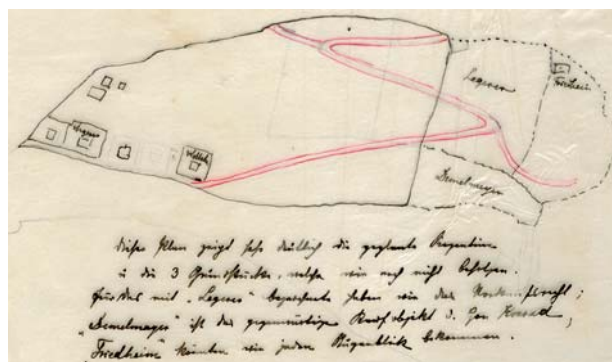 Legerer
Friedheim
Legerer
Demelmayer
Dieser Plan zeigt sehr deutlich die geplante
u die 3 Grundstücke, welche wir noch nicht besitzen.
Für das mit „Legerer“ bezeichnete haben wir das Vorkaufsrecht;
„Demelmayer“ ist das gegenwärtige Kaufobjekt d. Herrn Konrad,
„Friedheim“ könnten wir jeden Augenblick bekommen.